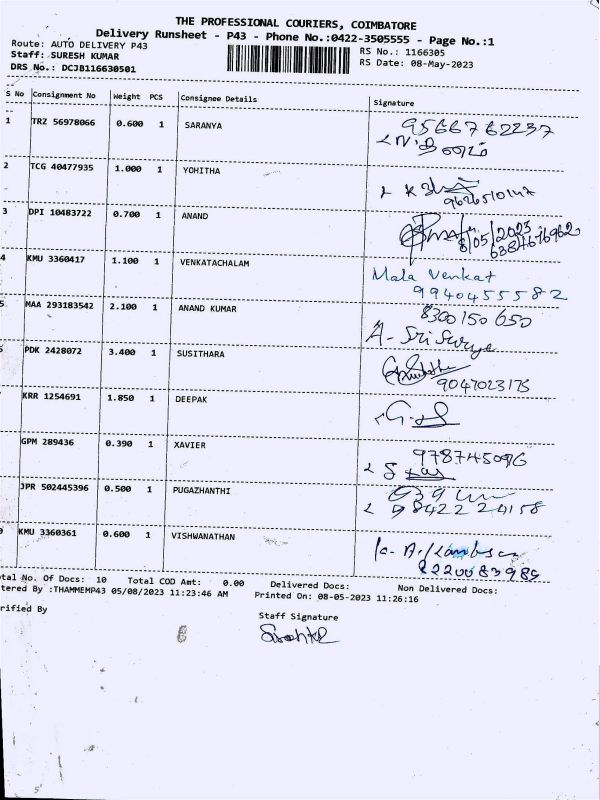 THE PROFESSIONAL COURIERS, COIMBATORE
Delivery Runsheet - P43 - Phone No.:0422-3505555 - Page No.:1
Route: AUTO DELIVERY P43
RS No.: 1166305
Staff: SURESH KUMAR
RS Date: 08-May-2023
DRS No.: DCJB116630501
S No Consignment No Weight PCS Consignee Details Signature
1 TRZ 56978066 0.600 1 SARANYA 9566762237
2 TCG 40477935 1.000 1 YOHITHA
9626510147
3 DPI 10483722 0.700 1 ANAND
8/05/2023
6384676962
4 KMU 3360417 1.100 1 VENKATACHALAM Mala Venkat
9940455582
5 MAA 293183542 2.100 1 ANAND KUMAR 8300150650
A- Sri Surya
PDK 2428072 3.400 1 SUSITHARA
9047023175
KRR 1254691 1.850 1 DEEPAK
GPM 289436 0.390 1 XAVIER 9787745096
JPR 502445396 0.500 1 PUGAZHANTHI
9842224158
KMU 3360361 0.600 1 VISHWANATHAN
8220083985
tal No. Of Docs: 10 Total COD Amt: 0.00 Delivered Docs: Non Delivered Docs:
tered By :THAMMEMP43 05/08/2023 11:23:46 AM Printed On: 08-05-2023 11:26:16
rified By
Staff Signature